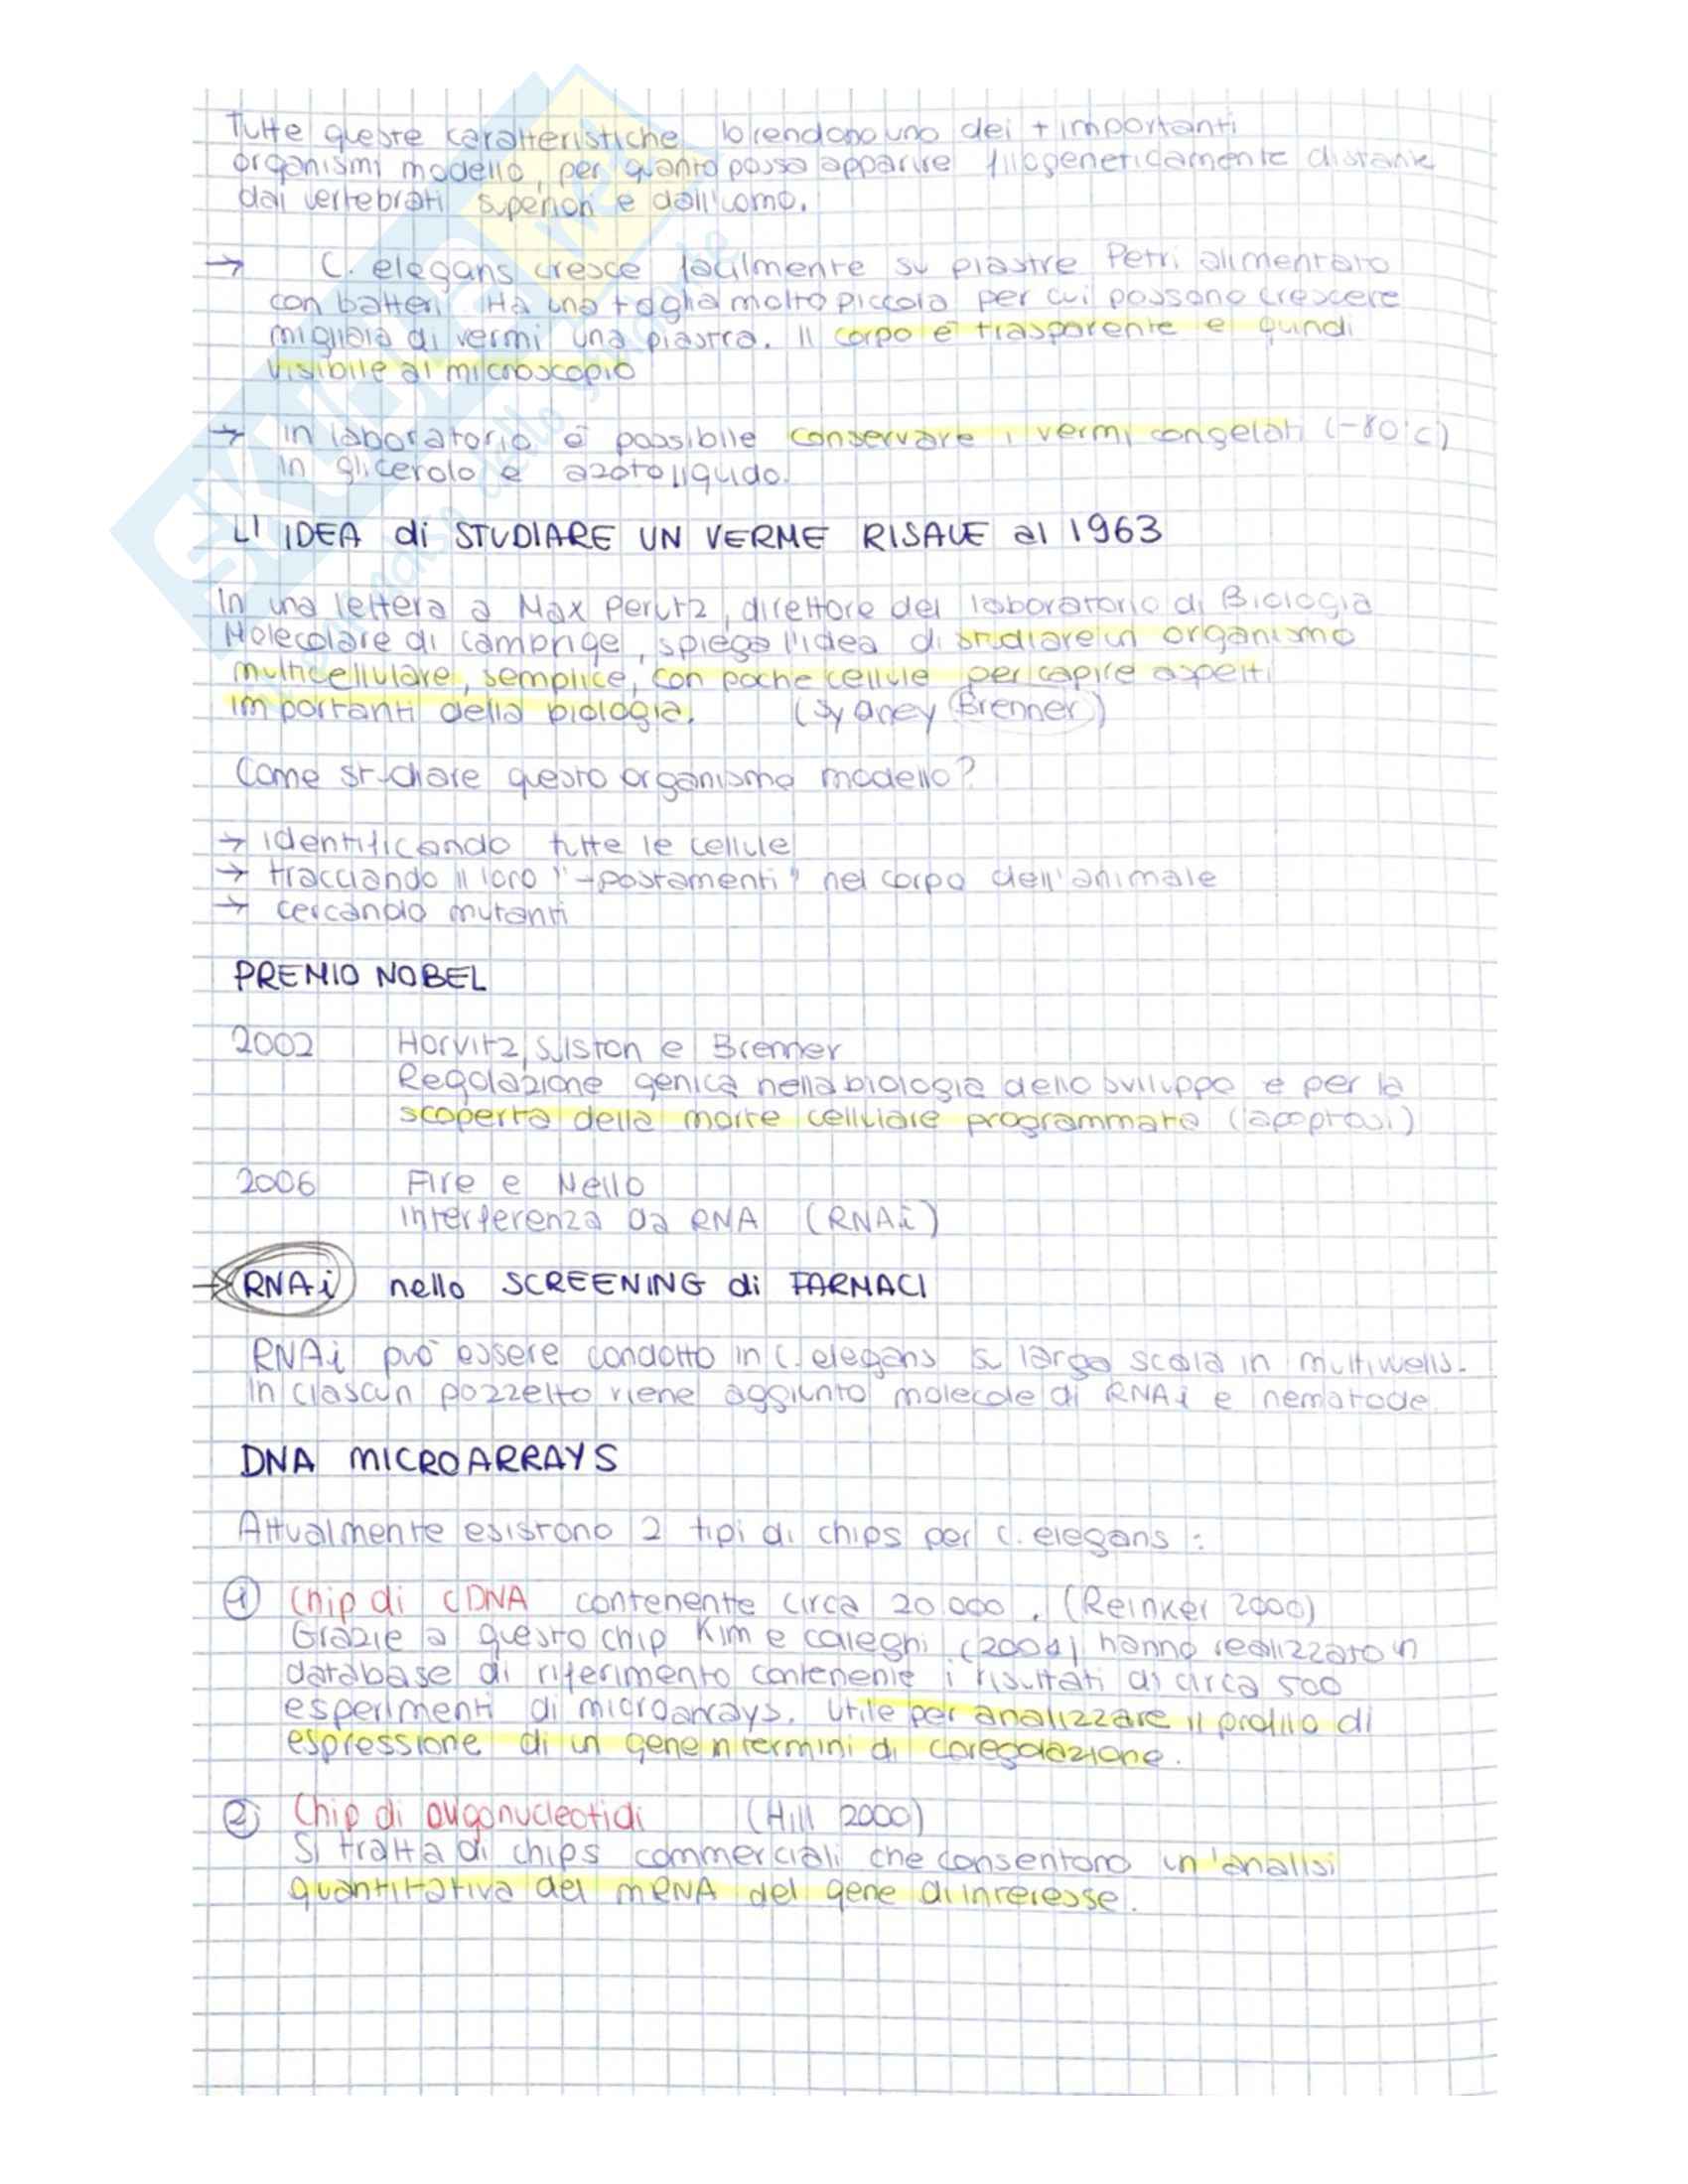 Tutte queste caratteristiche lo rendono uno dei + importanti
organismi modello, per quanto possa apparire filogeneticamente distante
dai vertebrati superiori e dall'uomo.
→ C. elegans cresce facilmente su piastre Petri alimentato
con batteri. Ha una taglia molto piccola per cui possono crescere
migliaia di vermi una piastra. Il corpo è trasparente e quindi
visibile al microscopio
→ In laboratorio è possibile conservare i vermi congelati (-80°C)
in glicerolo e azoto liquido.
L'IDEA di STUDIARE UN VERME RISALE al 1963
In una lettera a Max Perutz, direttore del laboratorio di Biologia
Molecolare di Cambrige, spiega l'idea di studiare un organismo
multicellulare, semplice, con poche cellule per capire aspetti
importanti della biologia. (Sydney Brenner)
Come studiare questo organismo modello?
→ identificando tutte le cellule
→ tracciando il loro "spostamenti" nel corpo dell'animale
→ cercando mutanti
PREMIO NOBEL
2002 Horvitz, Sulston e Brenner
Regolazione genica nella biologia dello sviluppo e per la
scoperta della morte cellulare programmata (apoptosi)
2006 Fire e Mello
interferenza da RNA (RNAi)
→ RNAi nello SCREENING di FARMACI
RNAi può essere condotto in C. elegans su larga scala in multiwells.
In ciascun pozzetto viene aggiunto molecole di RNAi e nematode.
DNA MICROARRAYS
Attualmente esistono 2 tipi di chips per C. elegans:
① Chip di cDNA contenente circa 20.000. (Reinker 2000)
Grazie a questo chip Kim e colleghi (2001) hanno realizzato un
database di riferimento contenente i risultati di circa 500
esperimenti di microarrays. Utile per analizzare il profilo di
espressione di un gene in termini di coregolazione.
② Chip di oligonucleotidi (Hill 2000)
Si tratta di chips commerciali che consentono un'analisi
quantitativa del mRNA del gene di interesse.
SKUOLA.net